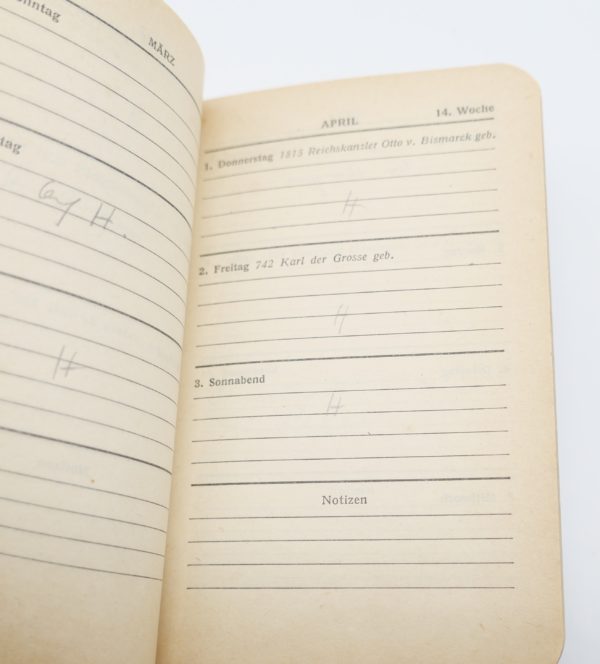 MÄRZ
H.
H
APRIL 14. Woche
1. Donnerstag 1815 Reichskanzler Otto v. Bismarck geb.
H
2. Freitag 742 Karl der Grosse geb.
H
3. Sonnabend
H
Notizen